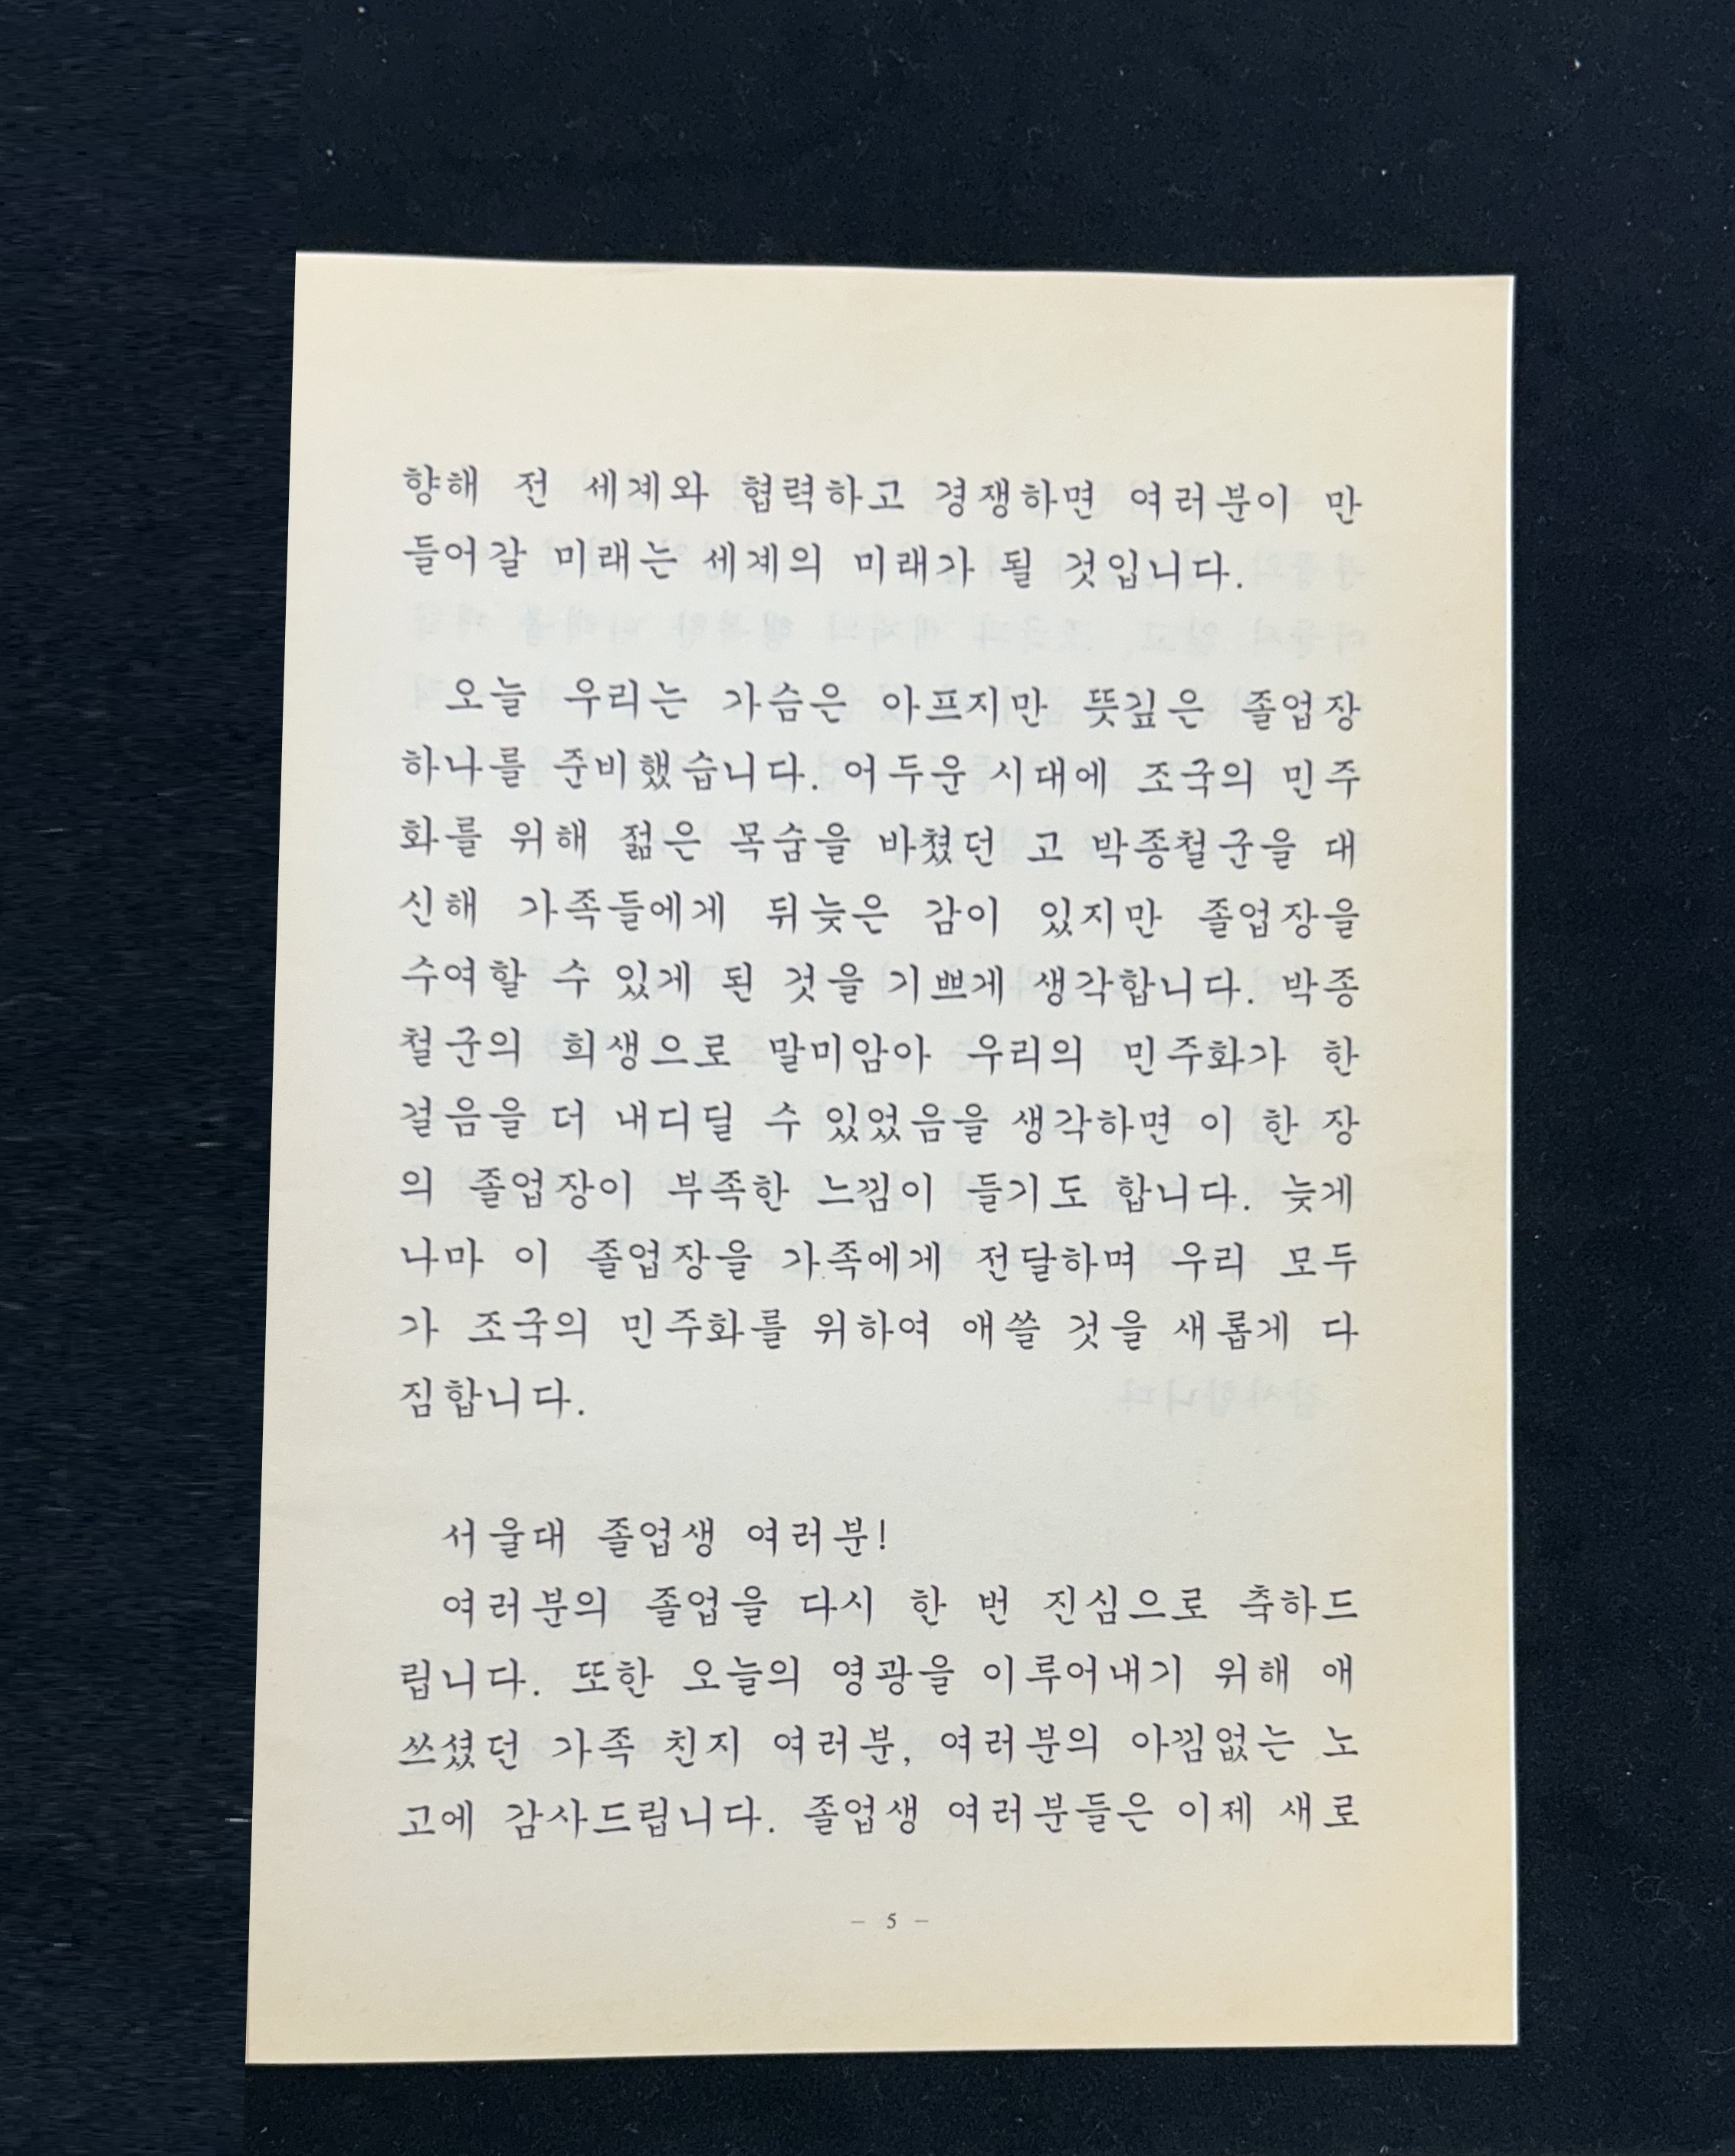 향해 전 세계와 협력하고 경쟁하면 여러분이 만
들어갈 미래는 세계의 미래가 될 것입니다.
오늘 우리는 가슴은 아프지만 뜻깊은 졸업장
하나를 준비했습니다. 어두운 시대에 조국의 민주
화를 위해 젊은 목숨을 바쳤던 고 박종철군을 대
신해 가족들에게 뒤늦은 감이 있지만 졸업장을
수여할 수 있게 된 것을 기쁘게 생각합니다. 박종
철군의 희생으로 말미암아 우리의 민주화가 한
걸음을 더 내디딜 수 있었음을 생각하면 이 한 장
의 졸업장이 부족한 느낌이 들기도 합니다. 늦게
나마 이 졸업장을 가족에게 전달하며 우리 모두
가 조국의 민주화를 위하여 애쓸 것을 새롭게 다
짐합니다.
서울대 졸업생 여러분!
여러분의 졸업을 다시 한 번 진심으로 축하드
립니다. 또한 오늘의 영광을 이루어내기 위해 애
쓰셨던 가족 친지 여러분, 여러분의 아낌없는 노
고에 감사드립니다. 졸업생 여러분들은 이제 새로
- 5 -